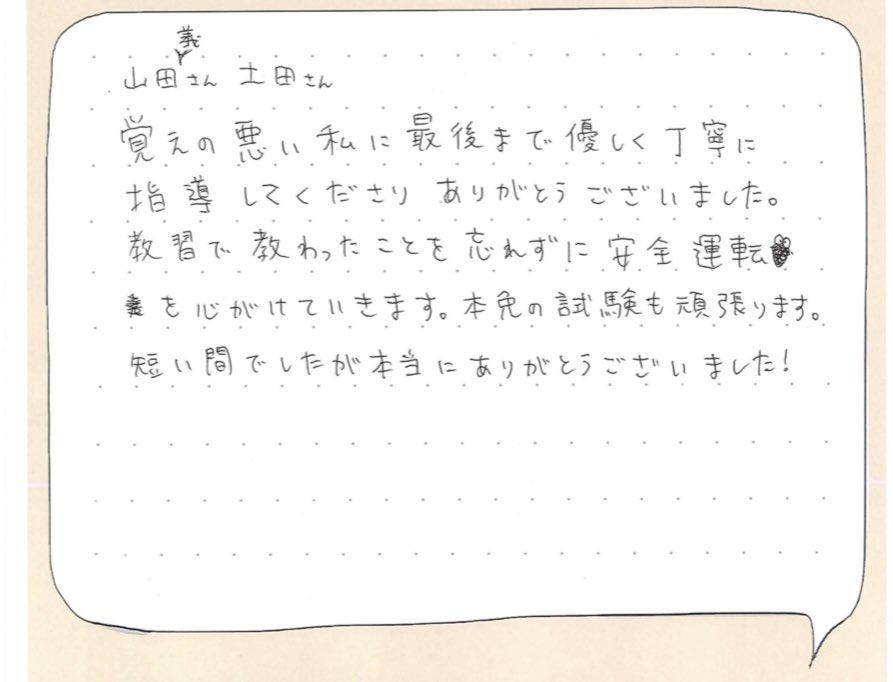 山田義さん 土田さん
覚えの悪い私に最後まで優しく丁寧に
指導してくださり ありがとうございました。
教習で教わったことを忘れずに安全運転
を心がけていきます。本免の試験も頑張ります。
短い間でしたが本当にありがとうございました!